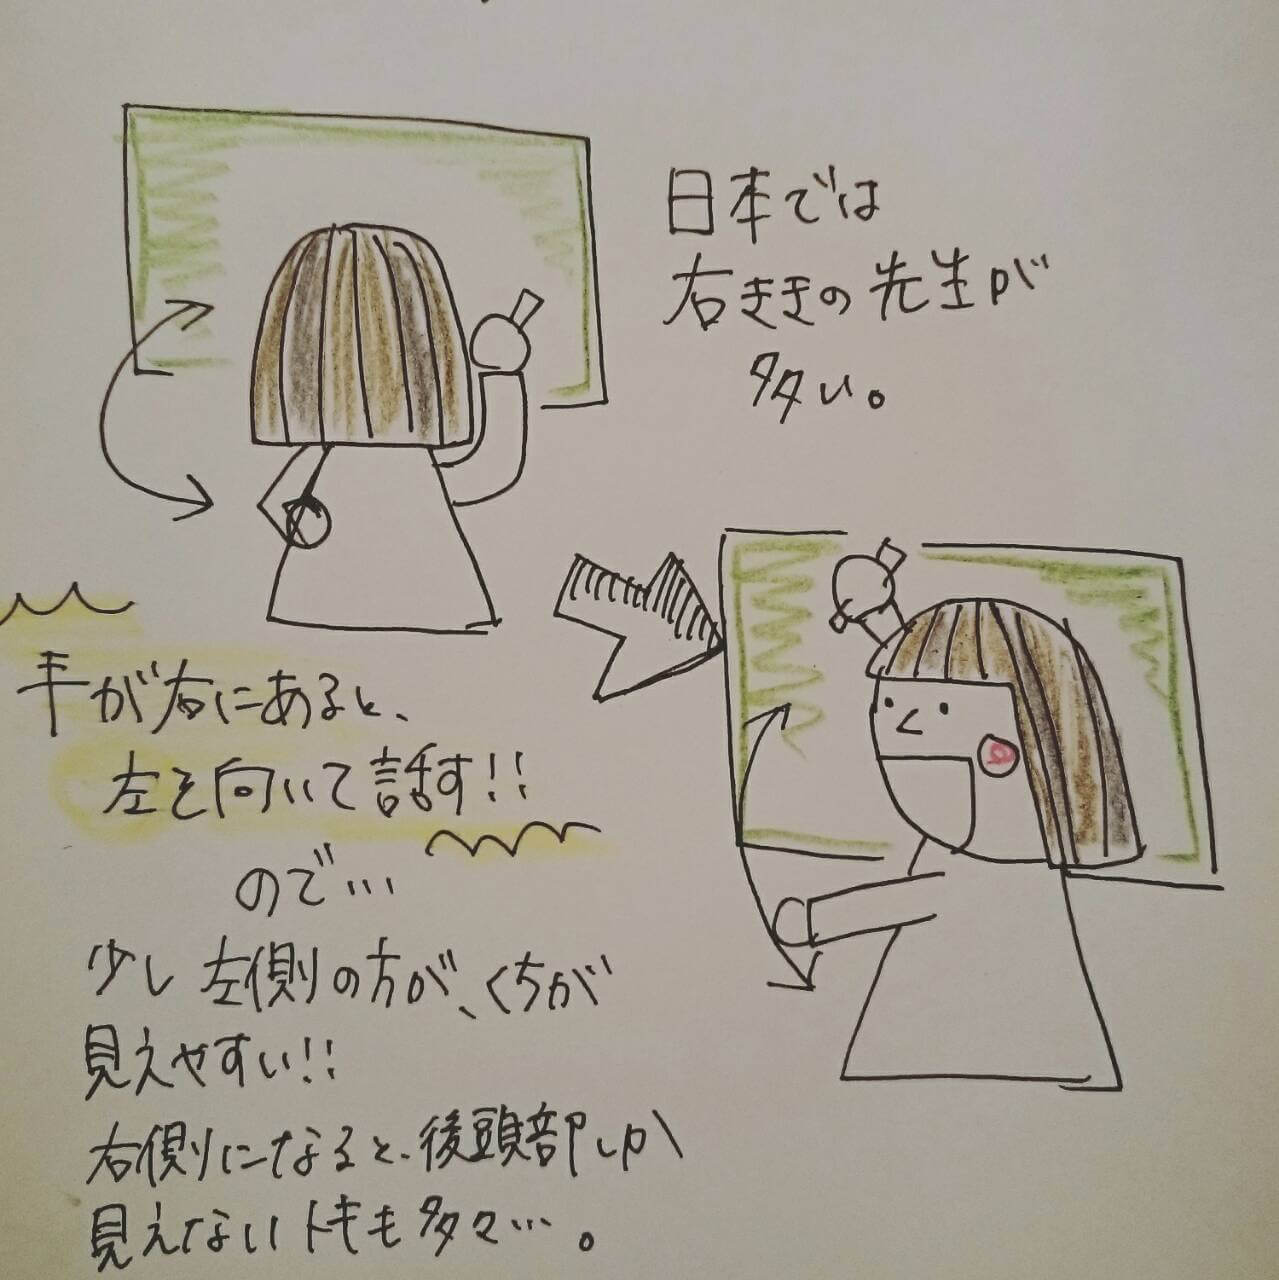 日本では
右ききの先生が
多い。
手が右にあると、
左を向いて話す!!
ので…
少し左側の方が、くちが
見えやすい!!
右側になると、後頭部しか
見えないトキも多々…。